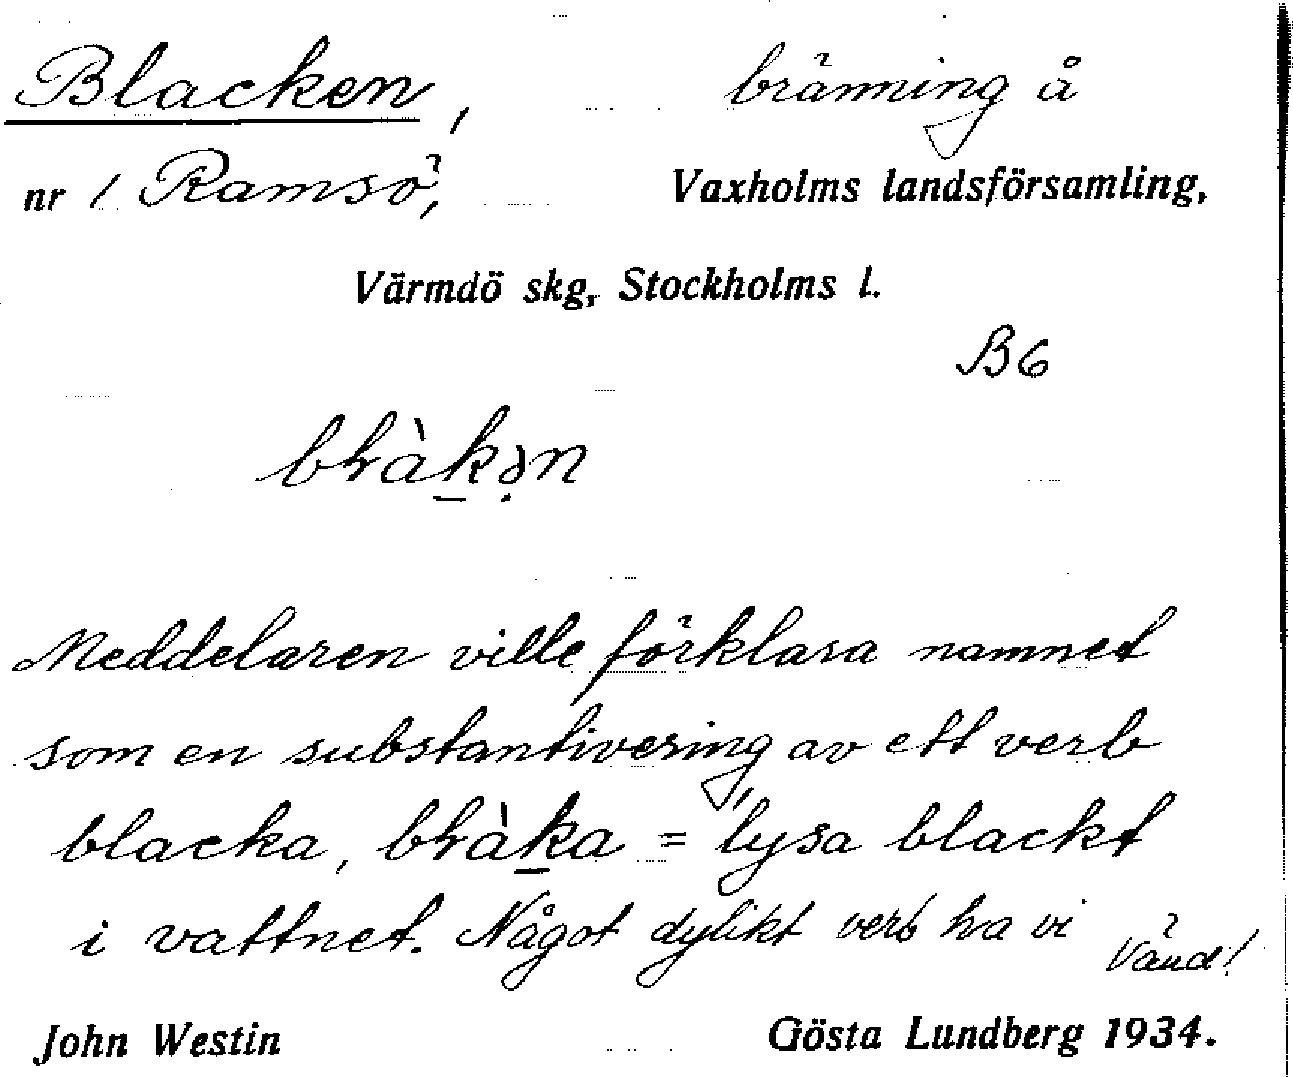 Blacken, bränning å
nr 1 Ramsö, Vaxholms landsförsamling,
Värmdö skg, Stockholms l.
B6
Meddelaren ville förklara namnet
som en substantivering av ett verb
blacka, = lysa blackt
i vattnet. Något dylikt verb ha vi
Vänd!
John Westin Gösta Lundberg 1934.